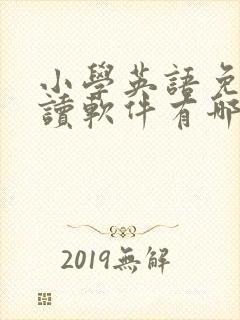 小學英語免
讀軟件有哪
2019無解